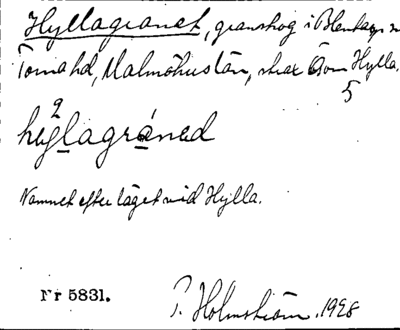 Hyllagranet, granskog i Blentarp
Torna hd, Malmöhus län, strax Ö om Hylla.
5
hyllagráned
Namnet efter läget vid Hylla.
Nr 5831. P. Holmström. 1928